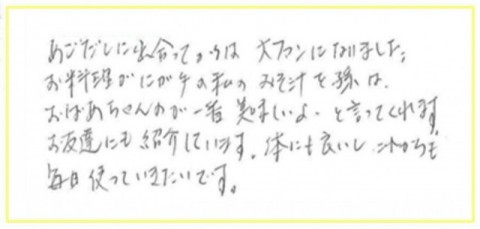 あごだしに出会ってからは 大ファンになりました。
お料理がにが手の私の みそ汁を 孫は、
おばあちゃんのが一番 美味しいよ。と言ってくれます
お友達にも紹介しています。体にも良いし これからも
毎日使っていきたいです。